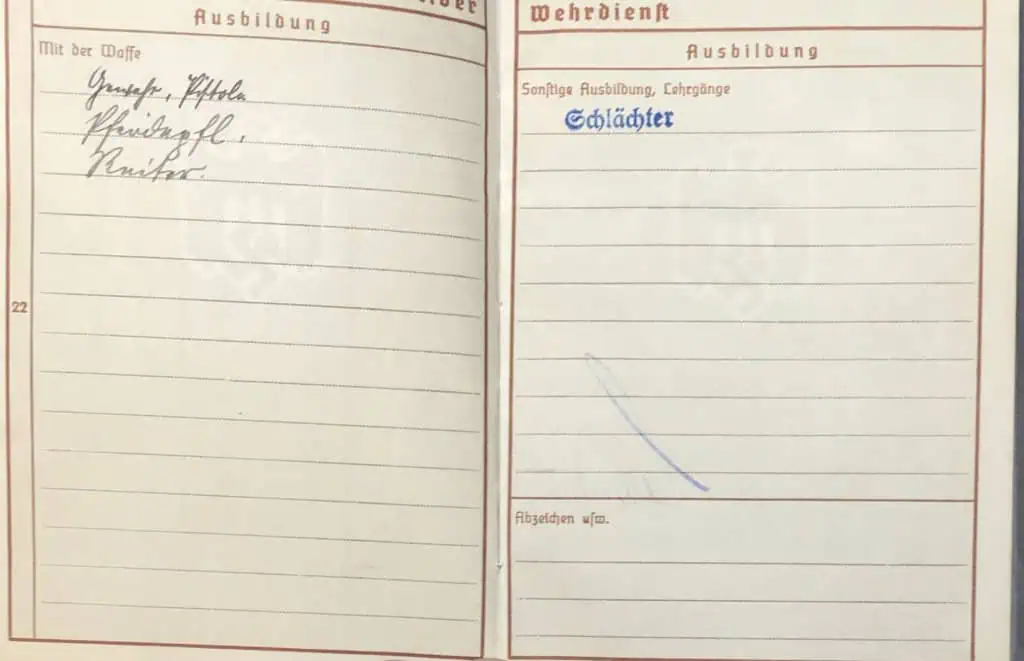 Ausbildung
Mit der Waffe
Gewehr, Pistole
Pferdepfl.,
Reiter.
22
Wehrdienst
Ausbildung
Sonstige Ausbildung, Lehrgänge
Schlächter
Abzeichen usw.